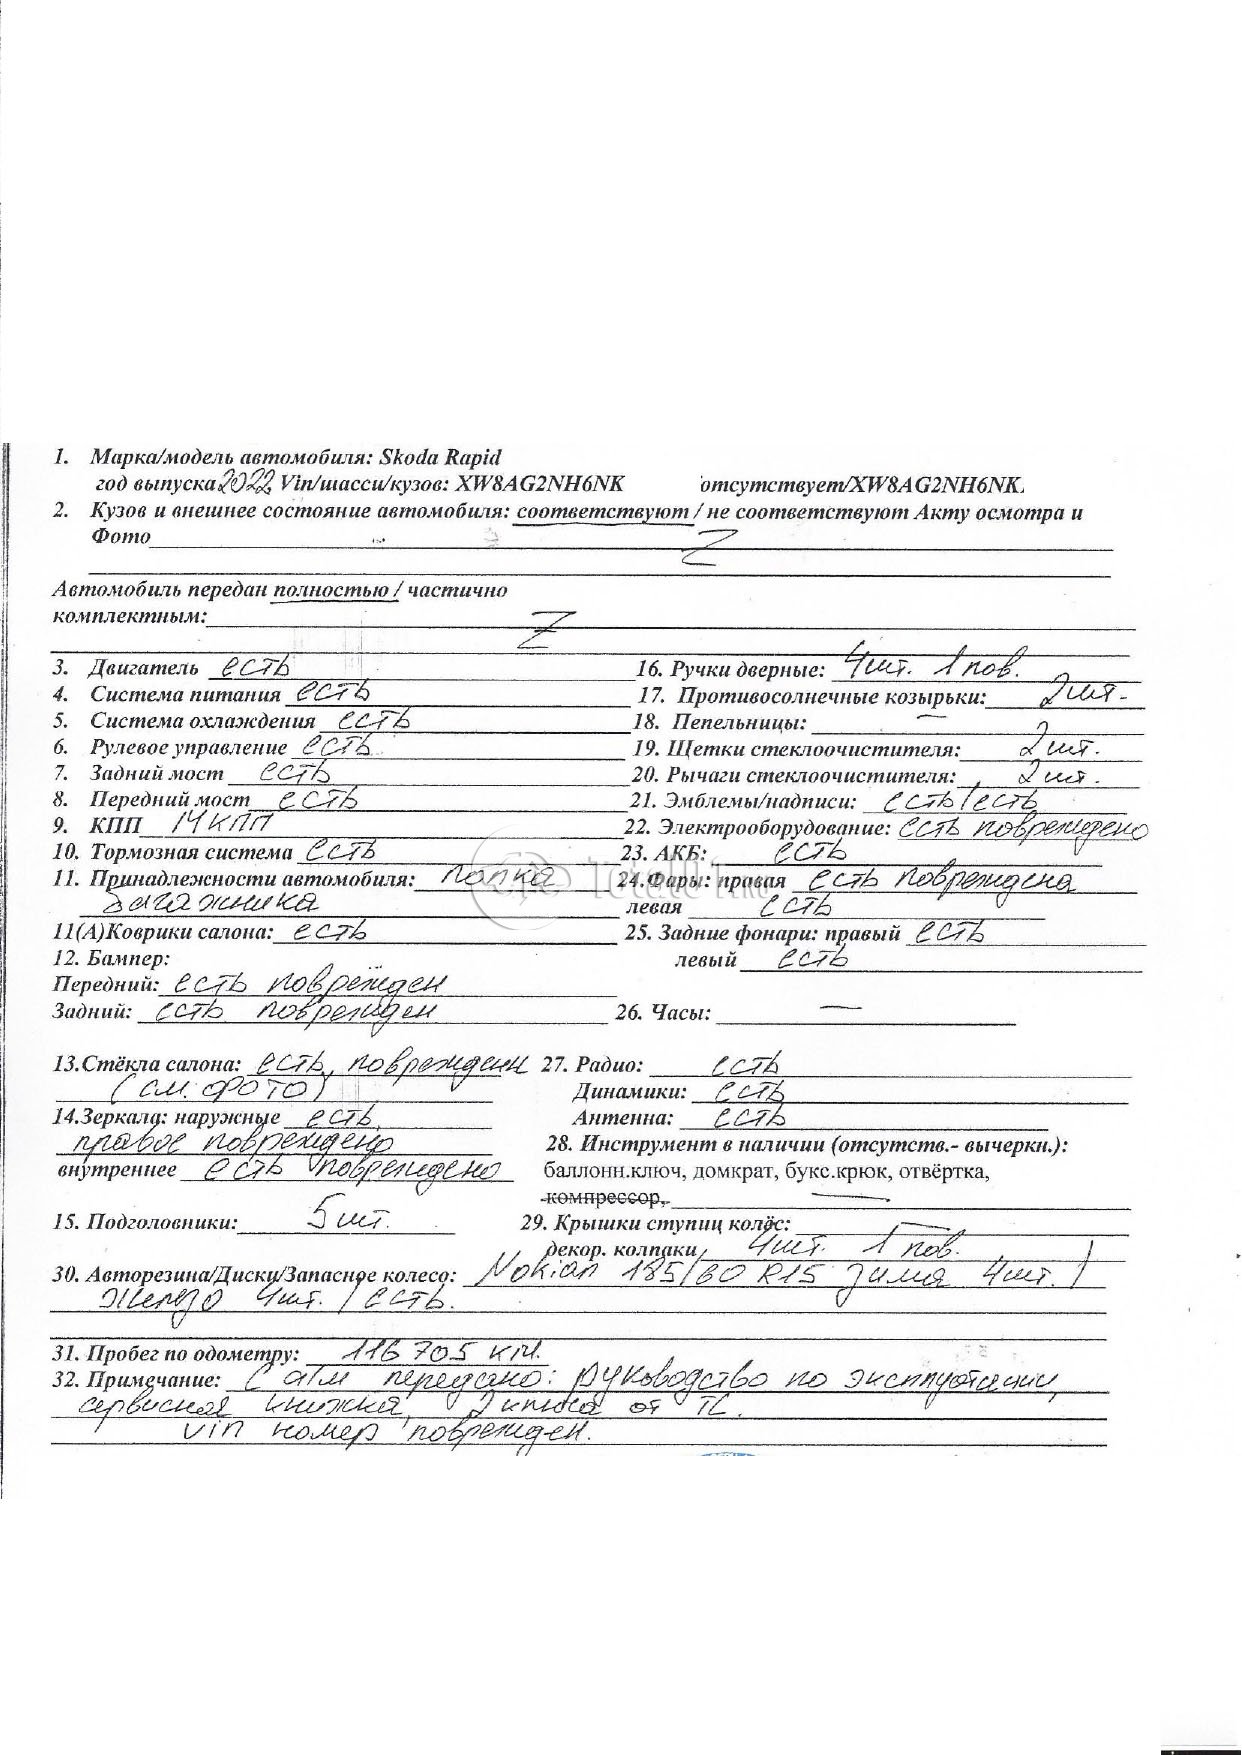 1. Марка/модель автомобиля: Skoda Rapid
год выпуска 2022 Vin/шасси/кузов: XW8AG2NH6NK отсутствует/XW8AG2NH6NK.
2. Кузов и внешнее состояние автомобиля: соответствуют / не соответствуют Акту осмотра и
Фото Z
Автомобиль передан полностью / частично
комплектным: Z
3. Двигатель есть
16. Ручки дверные: 4шт. 1 пов.
4. Система питания есть
17. Противосолнечные козырьки: 2шт.
5. Система охлаждения есть
18. Пепельницы: —
6. Рулевое управление есть
19. Щетки стеклоочистителя: 2 шт.
7. Задний мост есть
20. Рычаги стеклоочистителя: 2 шт.
8. Передний мост есть
21. Эмблемы/надписи: есть/есть
9. КПП МКПП
22. Электрооборудование: есть повреждено
10. Тормозная система есть
23. АКБ: есть
11. Принадлежности автомобиля: полка
24.Фары: правая есть повреждена
багажника
левая есть
Total01.RU
11(А)Коврики салона: есть
25. Задние фонари: правый есть
12. Бампер:
левый есть
Передний: есть поврежден
Задний: есть поврежден
26. Часы: —
13.Стёкла салона: есть, поврежден
27. Радио: есть
(см. фото)
Динамики: есть
14.Зеркала: наружные есть,
Антенна: есть
правое повреждено
28. Инструмент в наличии (отсутств.- вычеркн.):
внутреннее есть повреждено
баллонн.ключ, домкрат, букс.крюк, отвёртка,
компрессор, —
15. Подголовники: 5 шт.
29. Крышки ступиц колёс: —
декор. колпаки 4шт. 1 пов.
30. Авторезина/Диски/Запасное колесо: Nokian 185/60 R15 зима 4шт. /
Железо 4шт. / есть.
31. Пробег по одометру: 116 705 км.
32. Примечание: С а/м передано: руководство по эксплуатации,
сервисная книжка, 2 ключа от ТС.
vin номер поврежден.